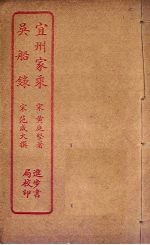 宜州家乘
宋 黄庭堅著
吳船錄
宋 范成大撰
進步書
局校印